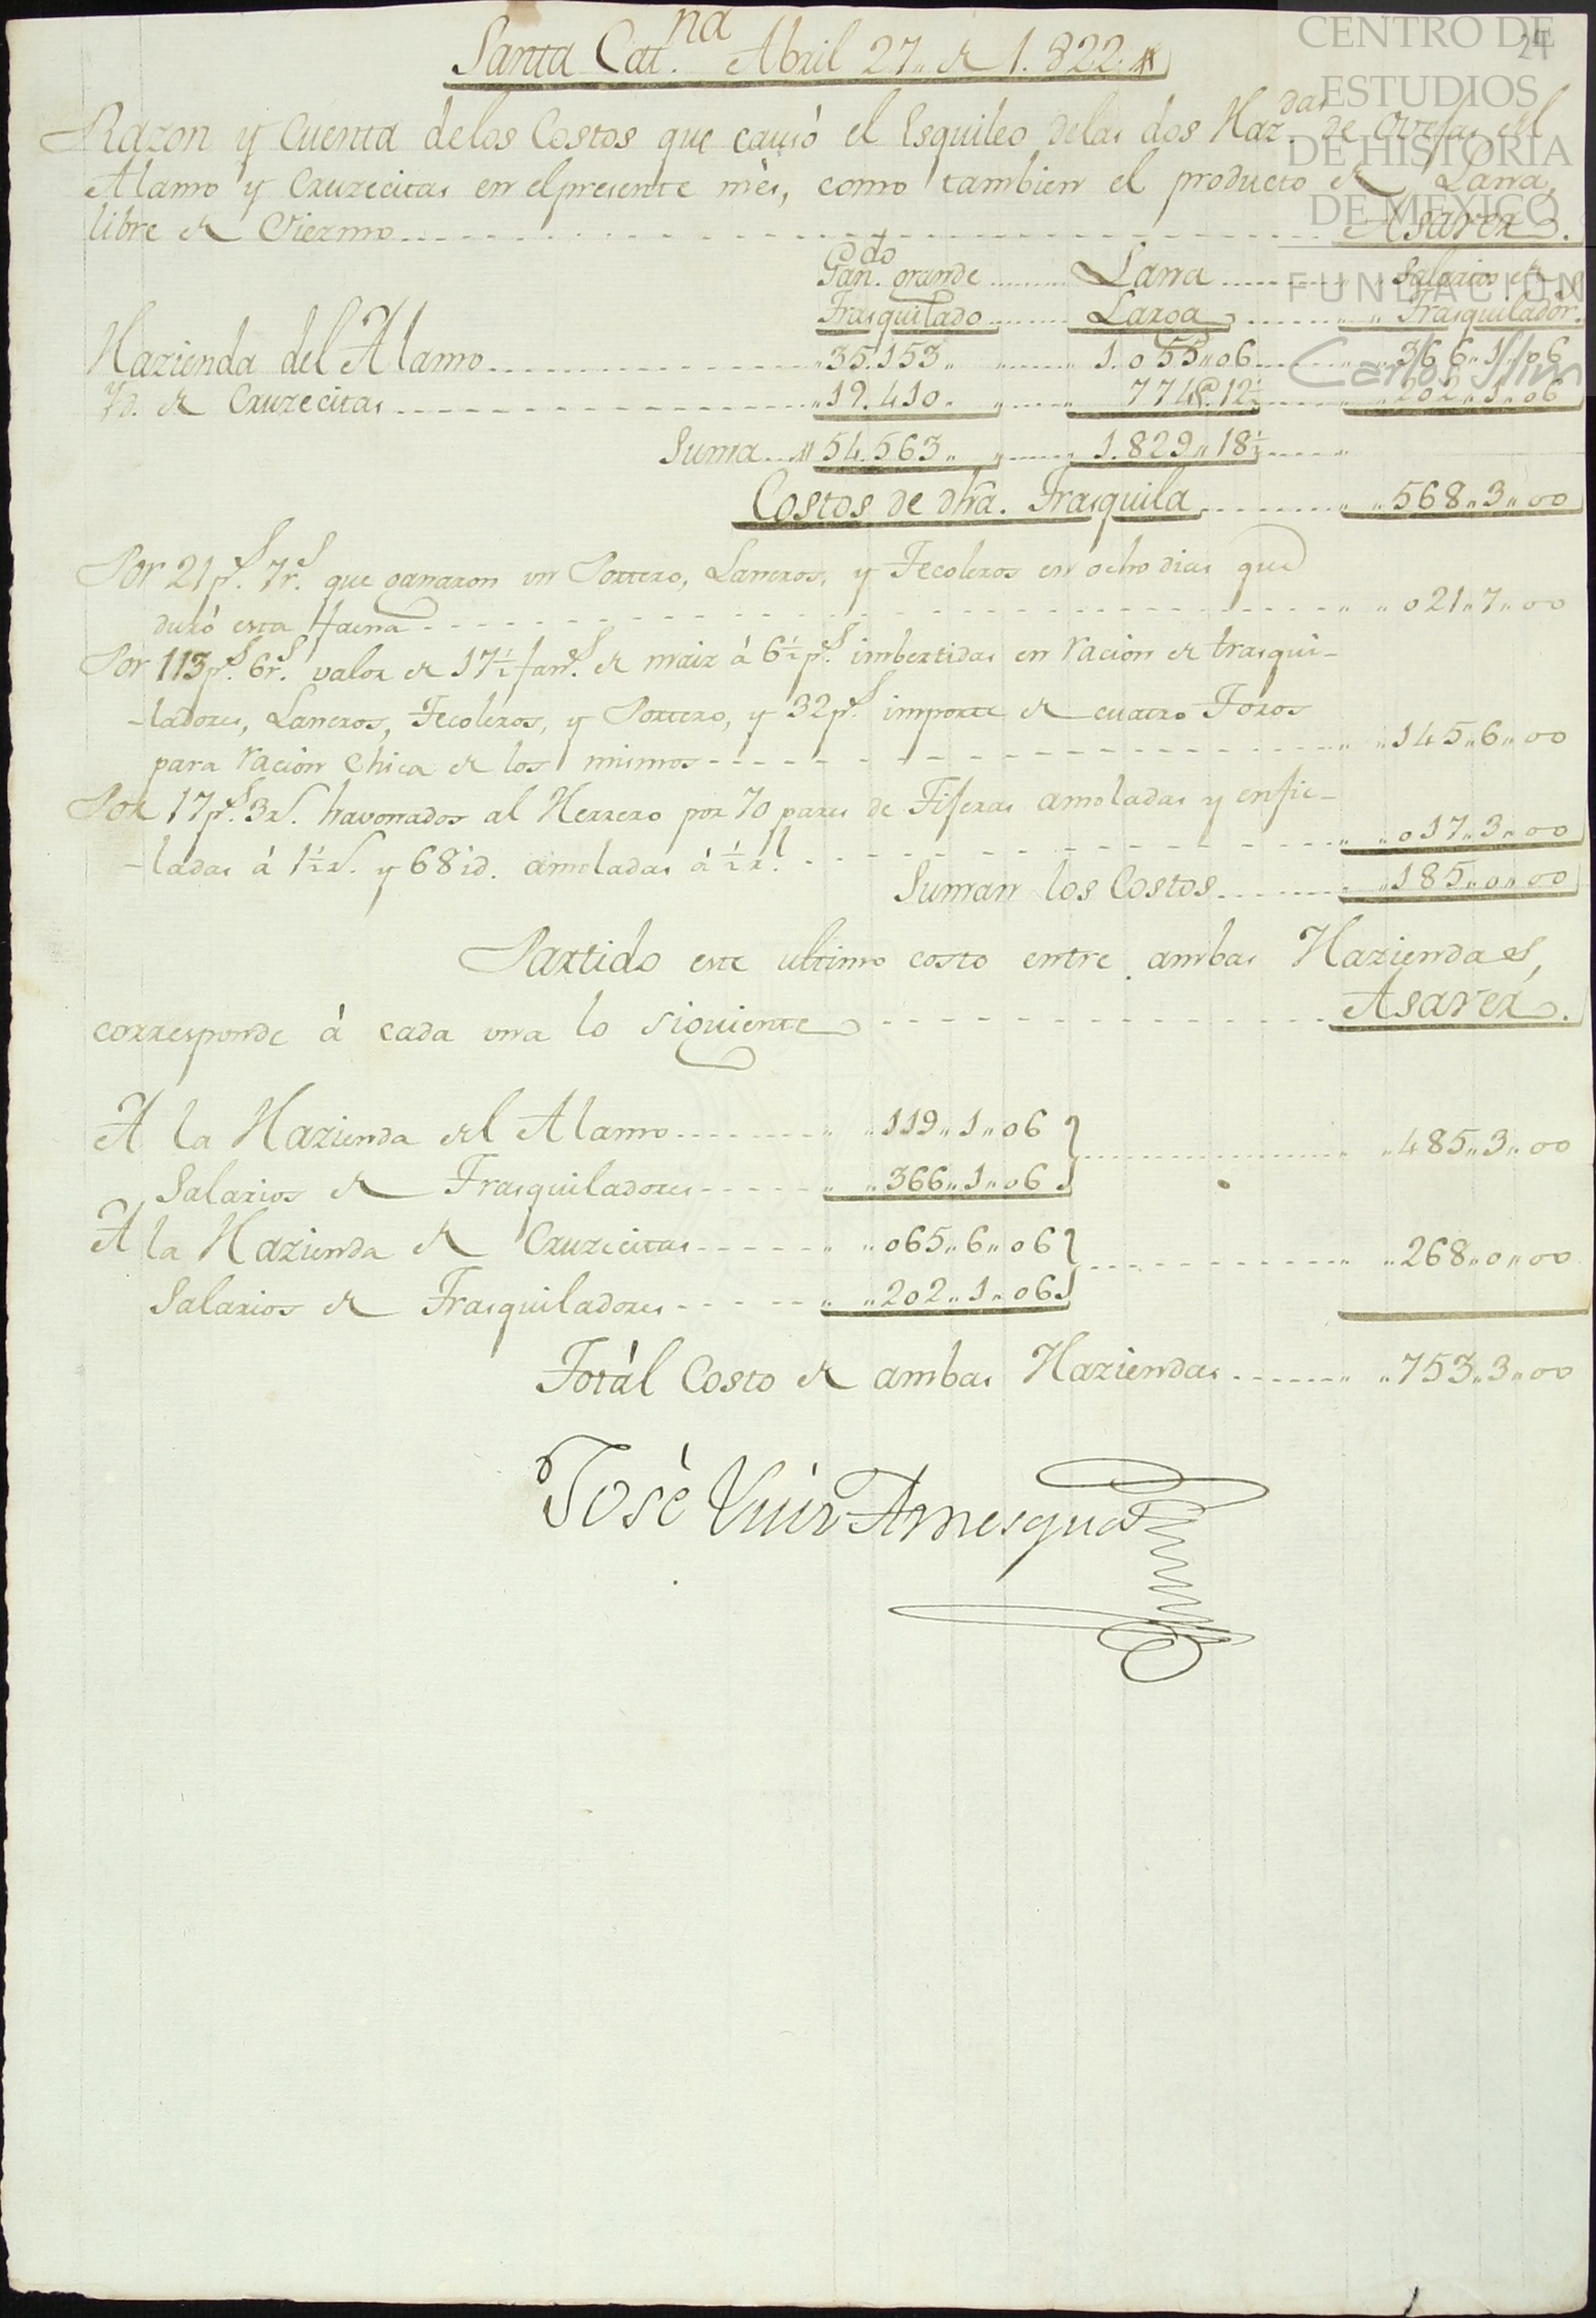 Santa Cat.na Abril 27,, de 1.822,,
24
CENTRO DE
ESTUDIOS
DE HISTORIA
DE MÉXICO
FUNDACIÓN
Carlos Slim
Razon y Cuenta delos Costos que causó el Esquileo delas dos Haz.das de Ovejas del
Alamo y Cruzecitas en elpresente mès, como tambien el producto de Lana,
libre de Diezmo Asaver.
Gan.do grande Lana Salarios de
Trasquilado Larga Trasquilador.
Hazienda del Alamo ,,35.153,, 1.055,,06 ,,366,,1,,06
Yd. de Cruzecitas ,,19.410,, 774@12½ ,,202,,1,,06
Suma ,,54.563,, 1.829,,18½
Costos de dha. Trasquila ,,568,,3,,00
Por 21 p.s 7 r.s que ganaron un Portero, Laneros, y Tecoleros en ocho dias que
duró esta faena ,,021,,7,,00
Por 113 p.s 6 r.s valor de 17½ fan.s de maiz á 6½ p.s imbertidas en racion de trasqui-
-ladores, Laneros, Tecoleros, y Portero, y 32 p.s importe de cuatro Toros
para racion chica de los mismos ,,145,,6,,00
Por 17 p.s 3 r.s havonados al Herrero por 70 pares de Tiferas amoladas y enfie-
-ladas á 1½ r.s y 68 id. amoladas á ½ r.l ,,017,,3,,00
Suman los Costos ,,185,,0,,00
Partido este ultimo costo entre ambas Haziendas,
corresponde á cada una lo siguiente Asaver.
A la Hazienda del Alamo ,,119,,1,,06
,,485,,3,,00
Salarios de Trasquiladores ,,366,,1,,06
A la Hazienda de Cruzecitas ,,065,,6,,06
,,268,,0,,00
Salarios de Trasquiladores ,,202,,1,,06
Totàl Costo de ambas Haziendas ,,753,,3,,00
Josè Amesqua